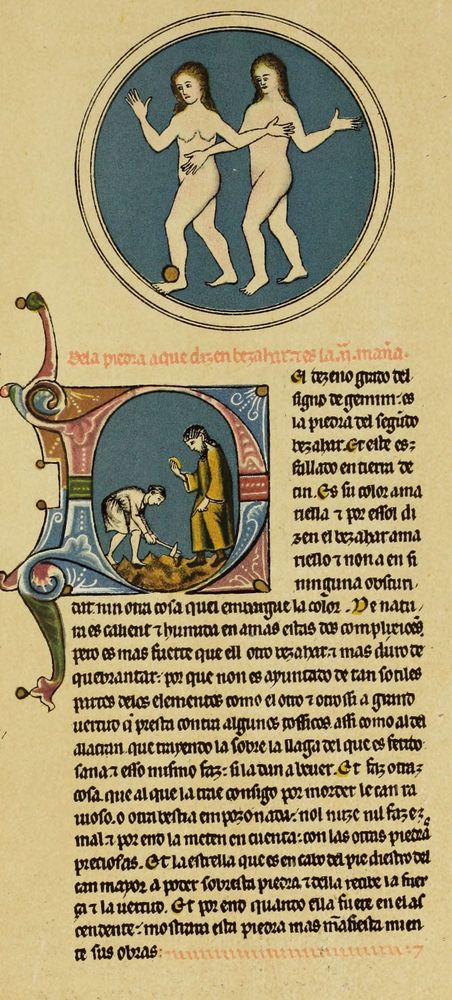 Dela piedra aque dizen bezahar ⁊ es la .ij. mana.
El dezeno grado del
signo de gemini: es
la piedra del segũdo
bezahar. Et este es
fallado en tierra de
cin. Es su color ama
riella ⁊ por esso di
zen el bezahar ama
riello ⁊ non a en si
ninguna obscuri
dat nin otra cosa quel embargue la color. De natu
ra es calient ⁊ humida en amas estas dos complixiões
pero es mas fuerte que ell otro bezahar ⁊ mas duro de
quebrantar: por que non es ayuntado de tan sotiles
partes delos elementos como el otro ⁊ otrossi a grand
uertud q̃ presta contra algunos tossicos. assi como al del
alacran. que trayendo la sobre la llaga del que es ferido
sana: ⁊ esso mismo faz: si la dan a beuer. Et faz otra
cosa. que al que la trae consigo por morder le can ra
uioso. o otra bestia empoçonada: nol nuze nil faze
mal: ⁊ por end la meten en cuenta: con las otras piedras
preciosas. Et la estrella que es en cabo del pie diestro del
can mayor a poder sobresta piedra: ⁊ della recibe la fuer
ça ⁊ la uertud. Et por end quando ella fuere en el as
cendente: mostrara esta piedra mas mãifiesta mien
te sus obras: